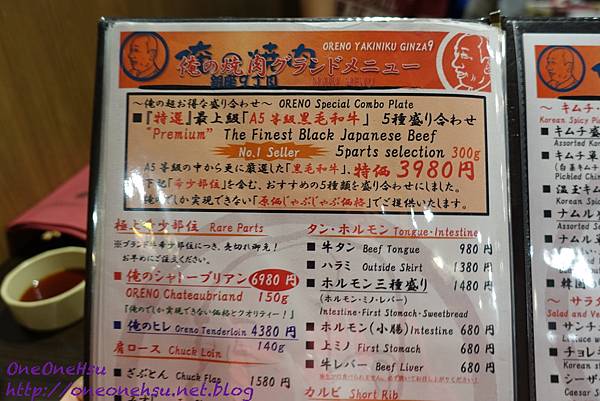 ORENO YAKINIKU GINZA9
俺の焼肉グランドメニュー
銀座9丁目
～俺の超お得な盛り合わせ～ ORENO Special Combo Plate
■『特選』最上級「A5等級黒毛和牛」 5種盛り合わせ
"Premium" The Finest Black Japanese Beef
No.1 Seller 5parts selection 300g
A5等級の中から更に厳選した「黒毛和牛」、特価 3980円
下記「希少部位」を含む、おすすめの5種類を盛り合わせにしました。
俺のでしか実現できない「原価じゃぶじゃぶ価格」でご提供いたします。
極上希少部位 Rare Parts
※ブランド牛希少部位につき、売切れ御免！
お早めにご注文ください。
■俺のシャトーブリアン 6980円
ORENO Chateaubriand 150g
「俺のでしか実現できない価格とクオリティー！」
■俺のヒレ Oreno Tenderloin 4380円
140g
肩ロース Chuck Loin
■ざぶとん Chuck Flap 1580円
タン・ホルモン Tongue・Intestine
■牛タン Beef Tongue 980円
■ハラミ Outside Skirt 1380円
■ホルモン三種盛り 1480円
(ホルモン・ミノ・レバー)
Intestine・First Stomach・Sweetbread
■ホルモン(小腸) Intestine 680円
■上ミノ First Stomach 580円
■牛レバー Beef Liver 580円
カルビ Short Rib
～キムチ・
Korean Spicy Pi
■キムチ盛
Assorted Ko
■キムチ単
(白菜キムチ
Pickled Chin
■温玉キム
Korean Spic
■ナムル盛
Assorted K
■ナムル単
■韓国
～サラダ
Salad and Ve
■サンチュ
Lettuce
■チョレギ
Korean
■シーザー
Caesar
OneOneHsu
http://oneonehsu.net.blog